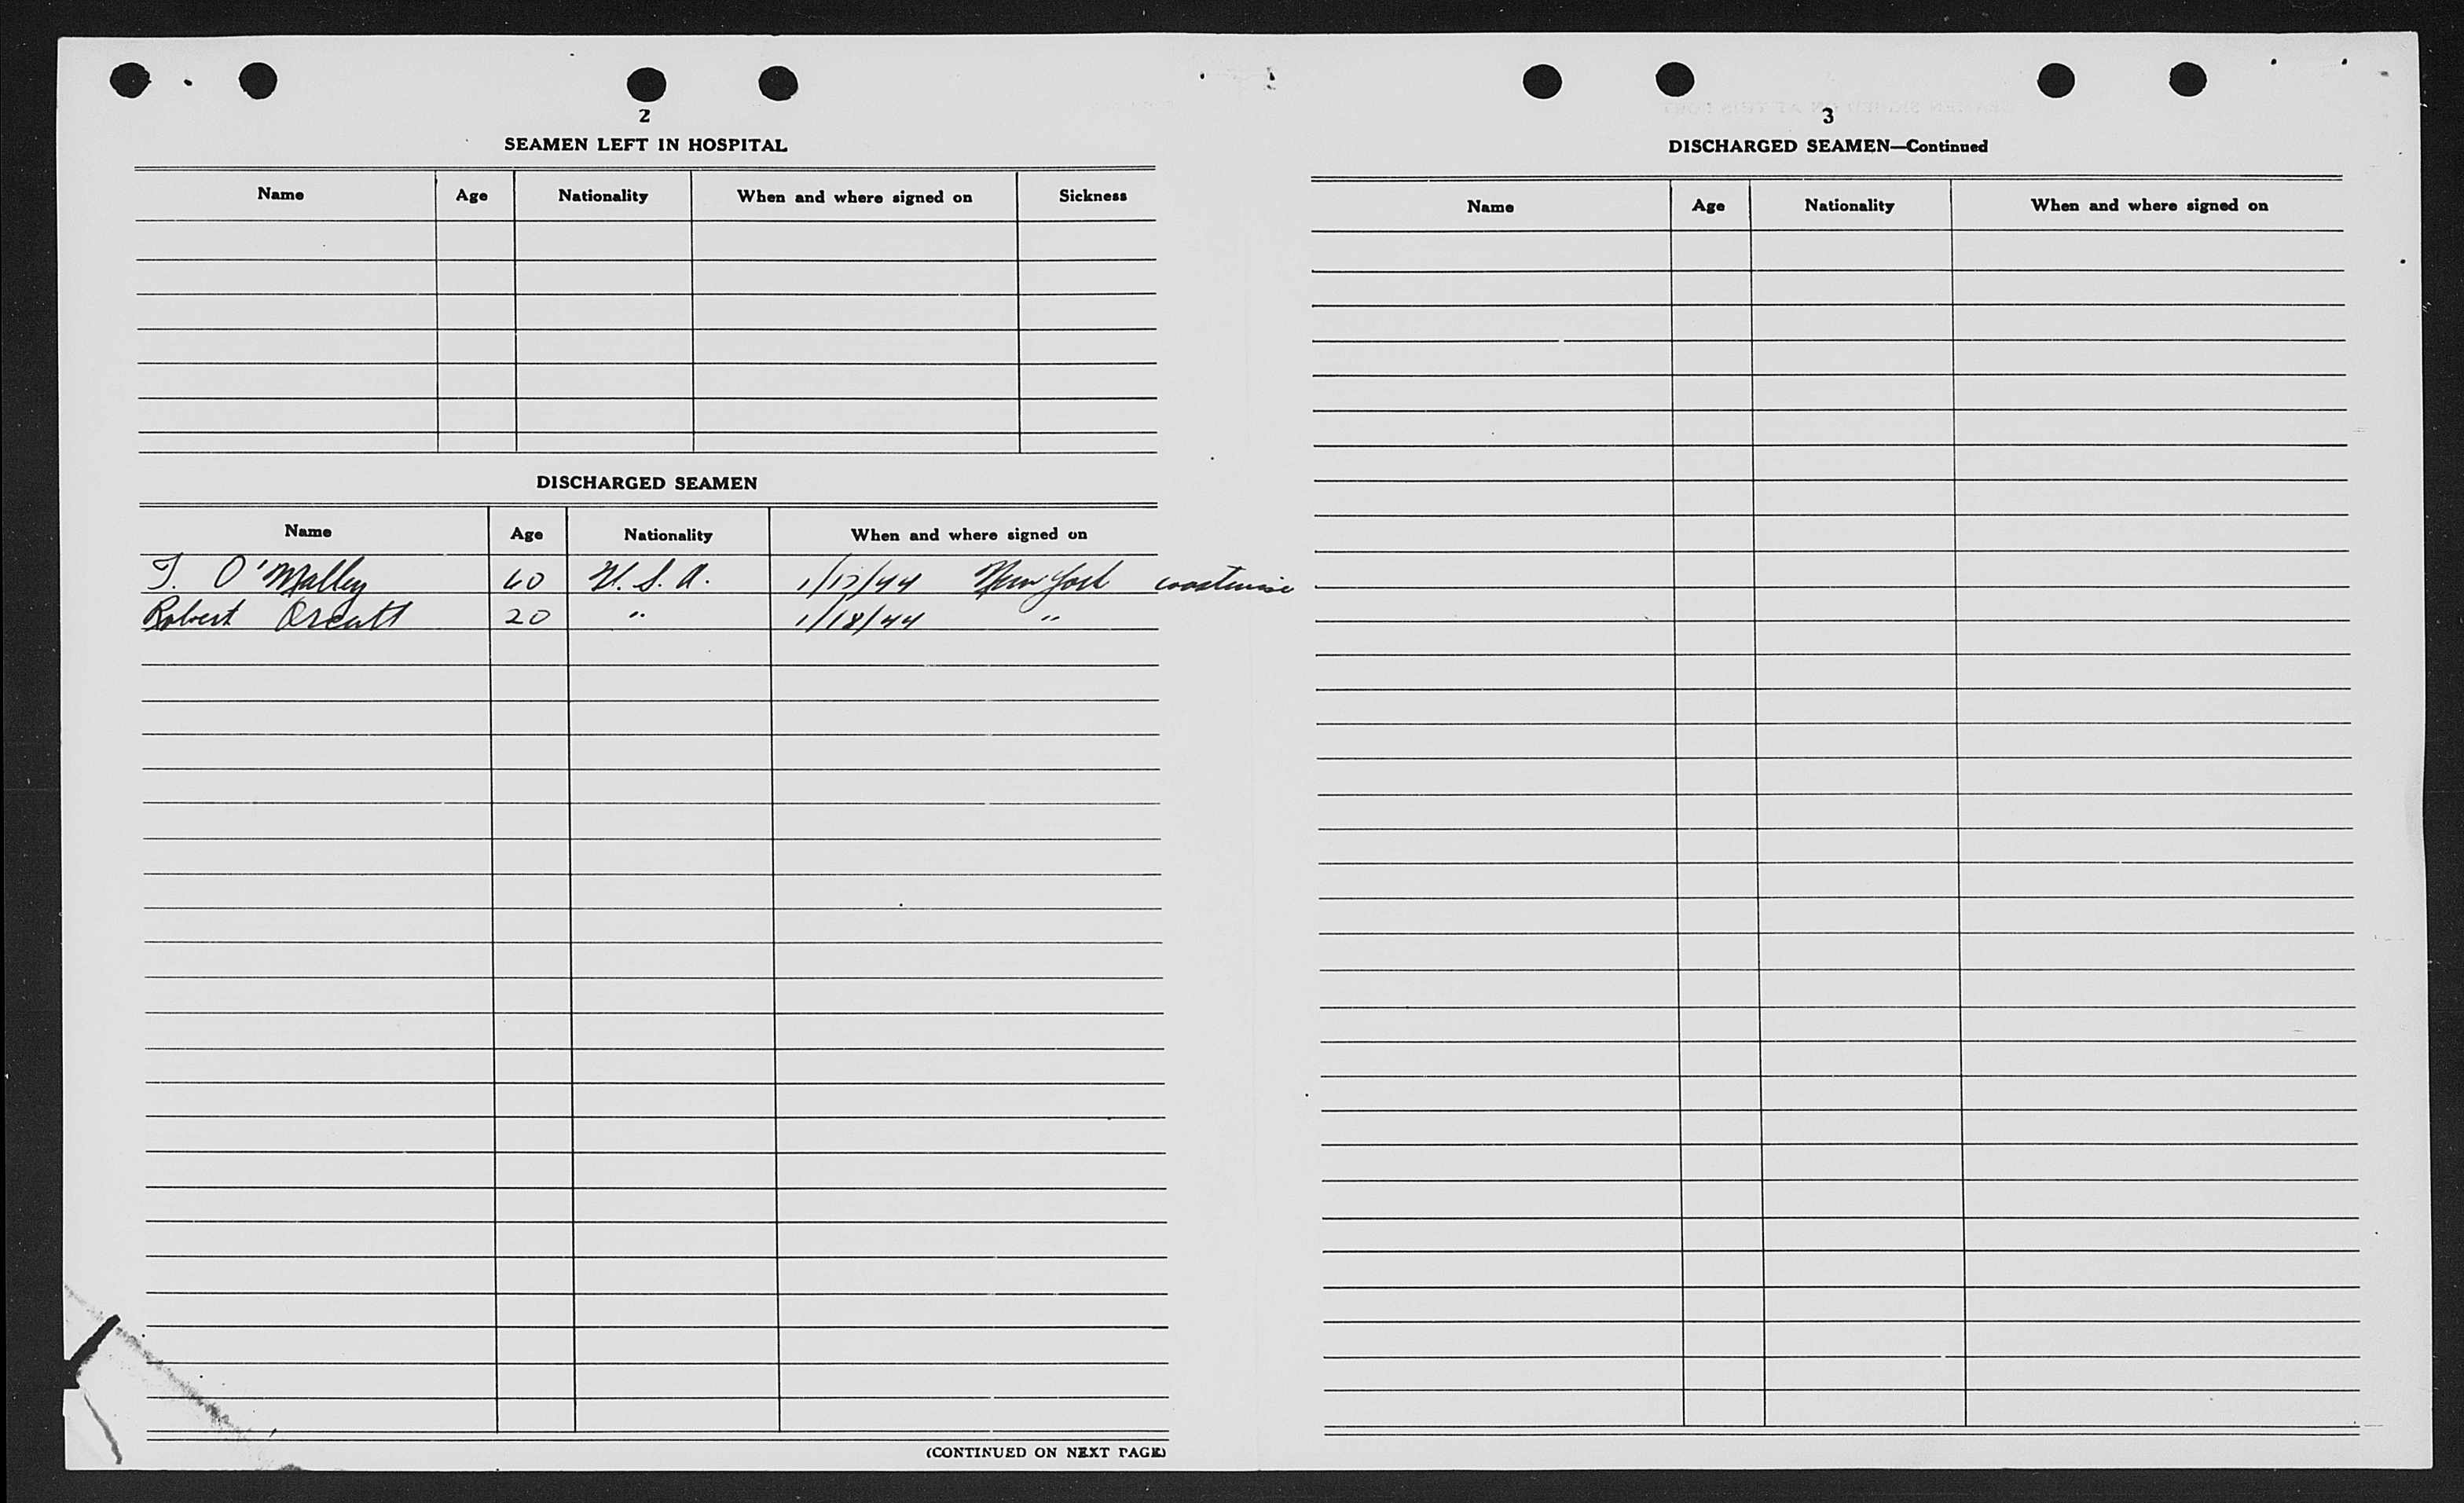 2
SEAMEN LEFT IN HOSPITAL
Name Age Nationality When and where signed on Sickness
DISCHARGED SEAMEN
Name Age Nationality When and where signed on
O'Malley U.S.A. New York coastwise
Robert Orcutt 20 " 1/18/44 "
(CONTINUED ON NEXT PAGE)
3
DISCHARGED SEAMEN—Continued
Name Age Nationality When and where signed on